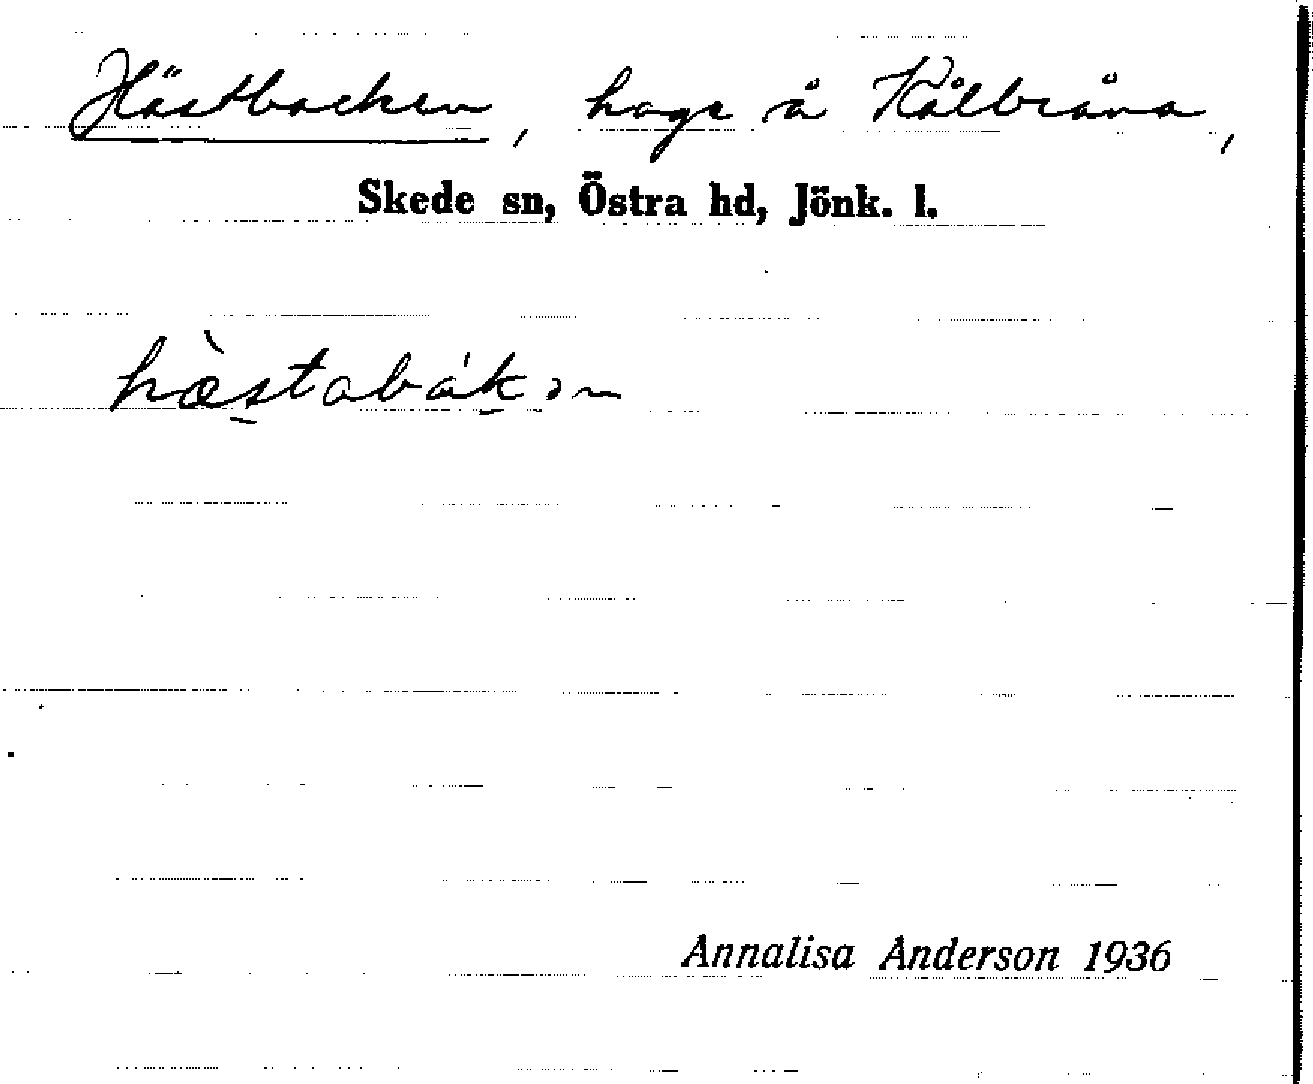 Hästbacken, hage å Kålbråna,
Skede sn, Östra hd, Jönk. l.
hæ̀stabákən
Annalisa Anderson 1936